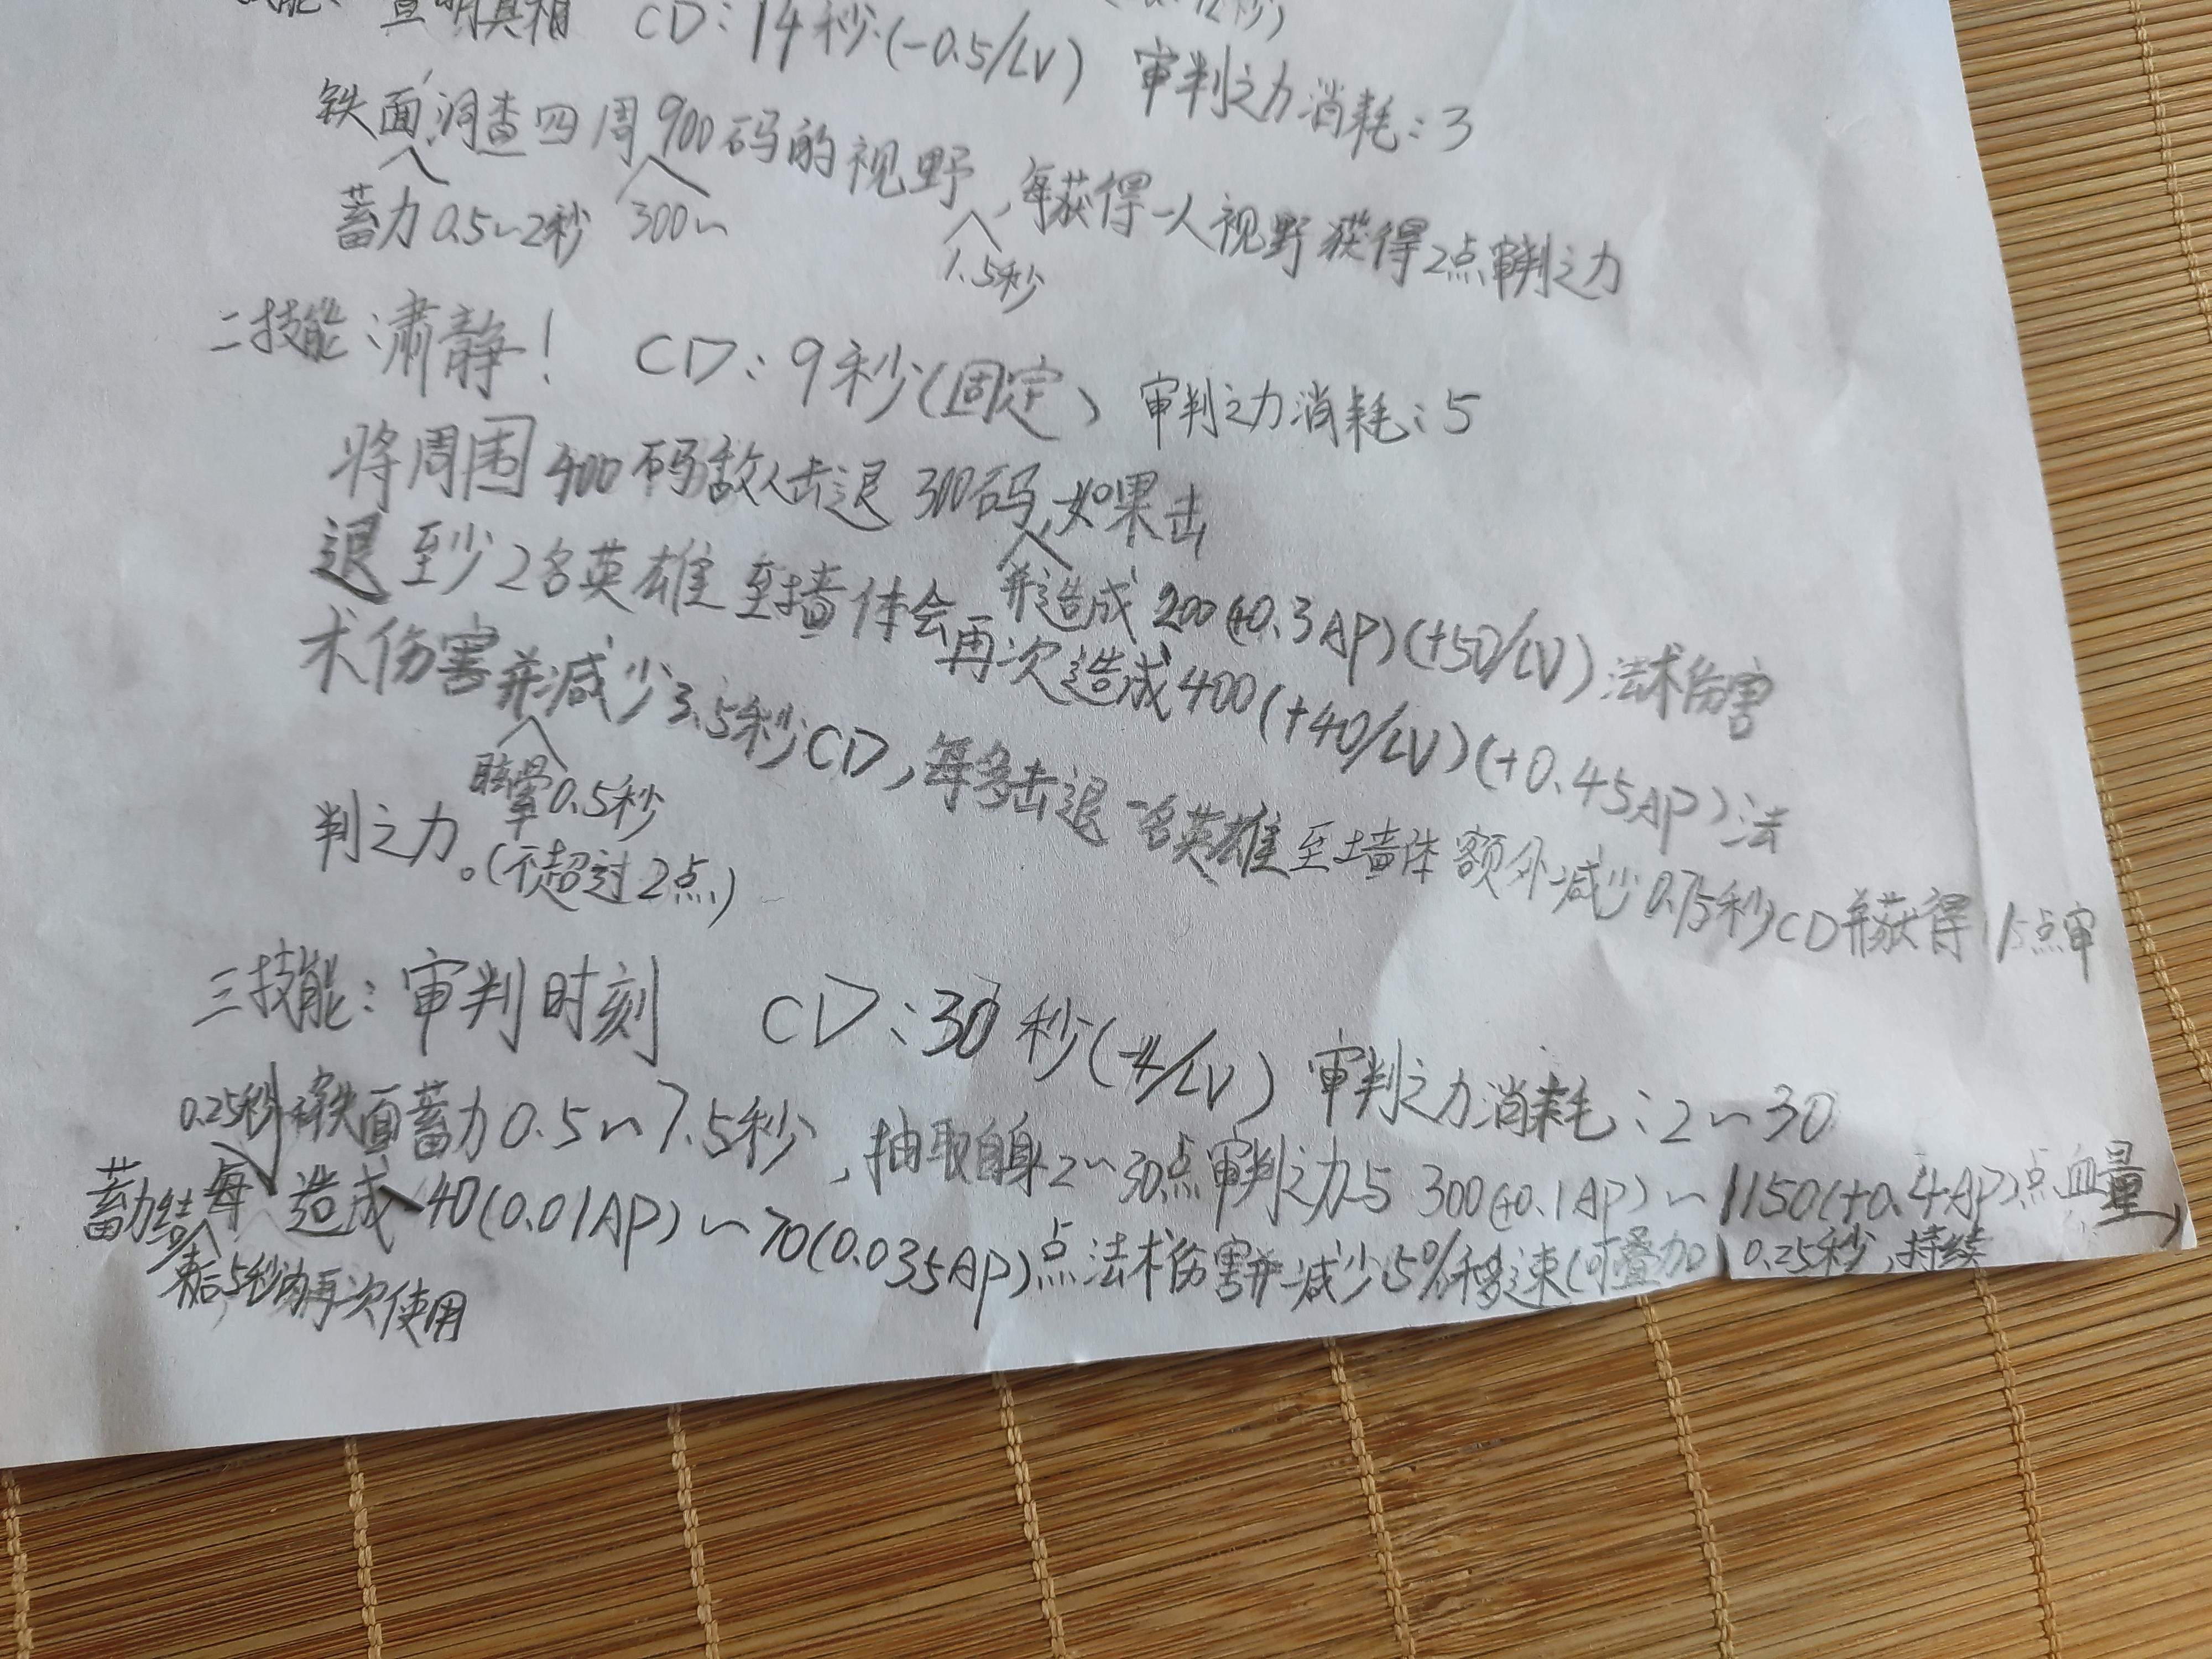 查明真相 CD:14秒(-0.5/LV) 审判之力消耗:3
铁面洞查四周900码的视野,每获得一人视野获得2点审判之力
蓄力0.5~2秒 300~ 1.5秒
二技能:肃静! CD:9秒(固定) 审判之力消耗:5
将周围400码敌人击退300码,如果击
并造成200(+0.3AP)(+50/LV)法术伤害
退至少2名英雄至墙体会再次造成400(+40/LV)(+0.45AP)法
术伤害并减少3.5秒CD,每多击退一名英雄至墙体额外减少0.75秒CD并获得1点审
眩晕0.5秒
判之力。(不超过2点)
三技能:审判时刻 CD:30秒(-4/LV) 审判之力消耗:2~30
铁面蓄力0.5~7.5秒,抽取自身2~30点审判之力与300(+0.1AP)~1150(+0.4AP)点血量,
0.25秒
蓄力结束后5秒内再次使用
每造成40(0.01AP)~70(0.035AP)点法术伤害并减少5%移速(可叠加)0.25秒,持续